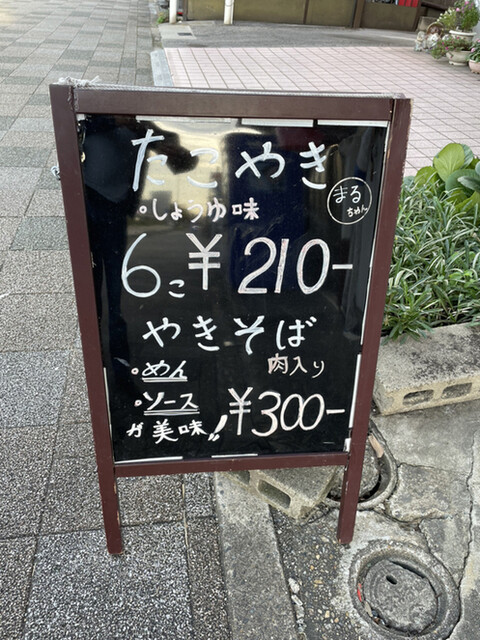 たこやき
・しょうゆ味
まる
ちゃん
6こ ¥210-
やきそば
・めん 肉入り
・ソース ¥300-
が美味!!